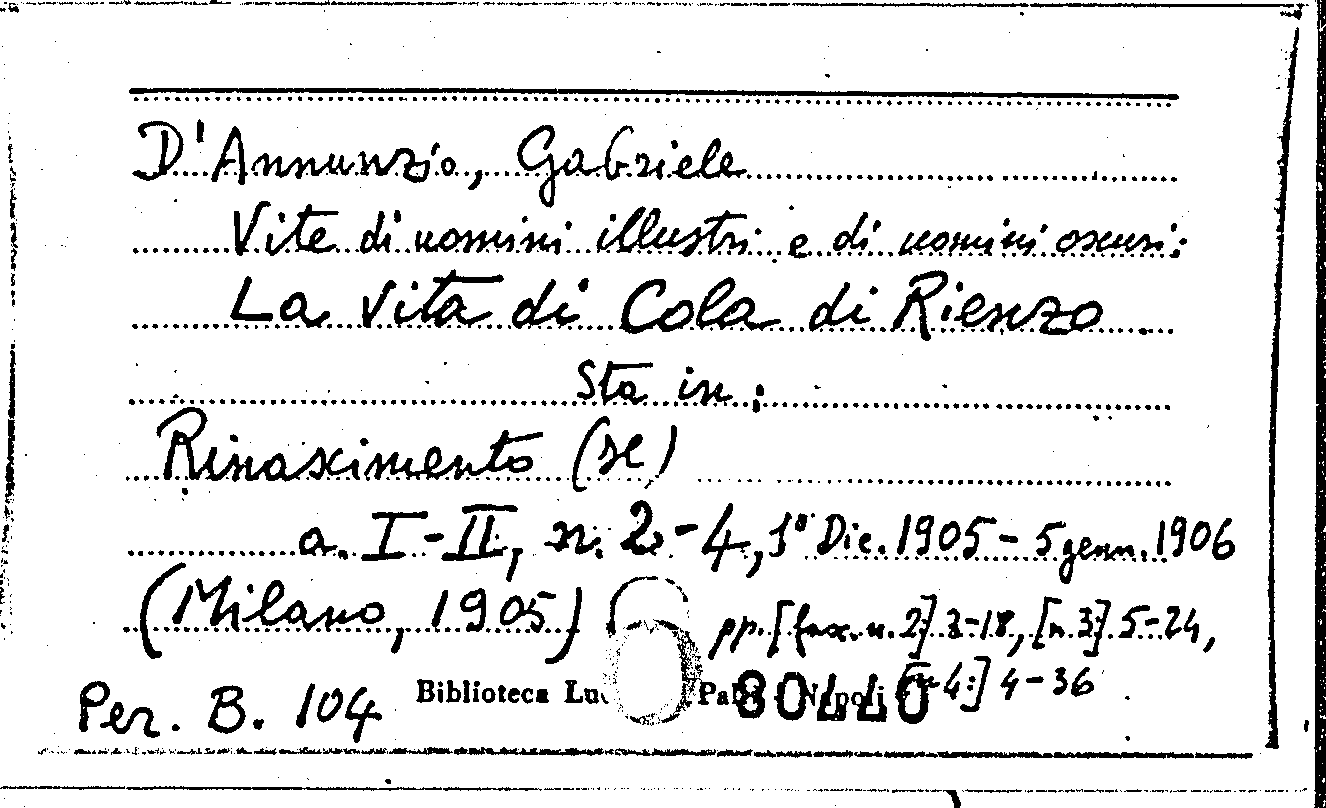 D'Annunzio, Gabriele
Vite di uomini illustri e di uomini oscuri:
La Vita di Cola di Rienzo
Sta in:
Rinascimento (Il)
a. I-II, n. 2-4, 1° Dic. 1905 - 5 genn. 1906
(Milano, 1905) pp. [fasc. n. 2:] 3-18, [n. 3:] 5-24,
4:] 4-36
Per. B. 104 Biblioteca